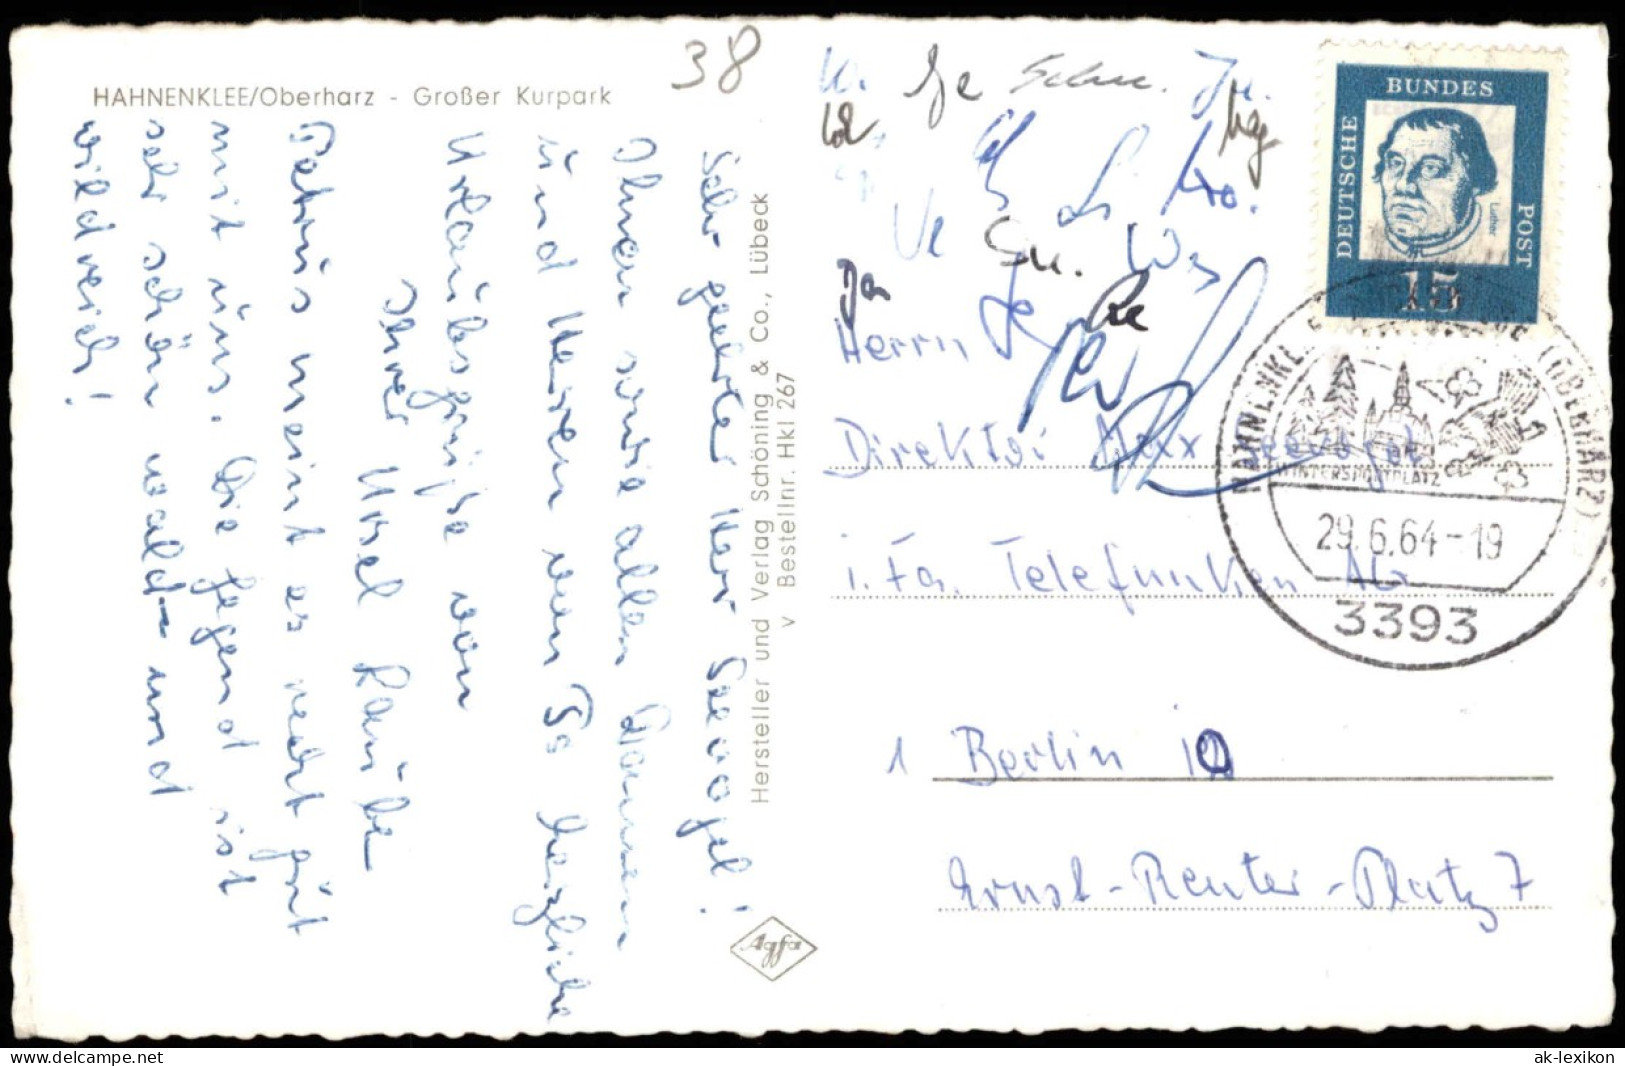 HAHNENKLEE/Oberharz - Großer Kurpark
38
Sehr geehrter Herr Seevogel!
Ihnen sowie allen Damen
und Herren von Ts herzliche
Urlaubsgrüße von
Ihrer Ursel Raube
Petrus meint es recht gut
mit uns. Die Gegend ist
sehr schön wald- und
wildreich!
Hersteller und Verlag Schöning & Co., Lübeck
v Bestellnr. Hkl 267
Agfa
Ge
Schu.
Ve
Su.
Da
Re
DEUTSCHE
BUNDES
POST
Luther
15
HAHNENKLEE
(OBERHARZ)
WINTERSPORTPLATZ
29.6.64-19
3393
Herrn
Direktor Max Seevogel
i. Fa. Telefunken AG
1 Berlin 10
Ernst-Reuter-Platz 7
ak-lexikon.de/ansichtskarten.html
ak-lexikon